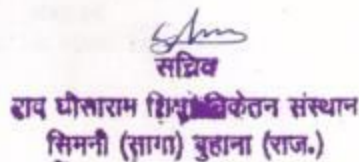 सचिव
राव घीसाराम शिक्षा निकेतन संस्थान
सिमनी (सागा) बुहाना (राज.)